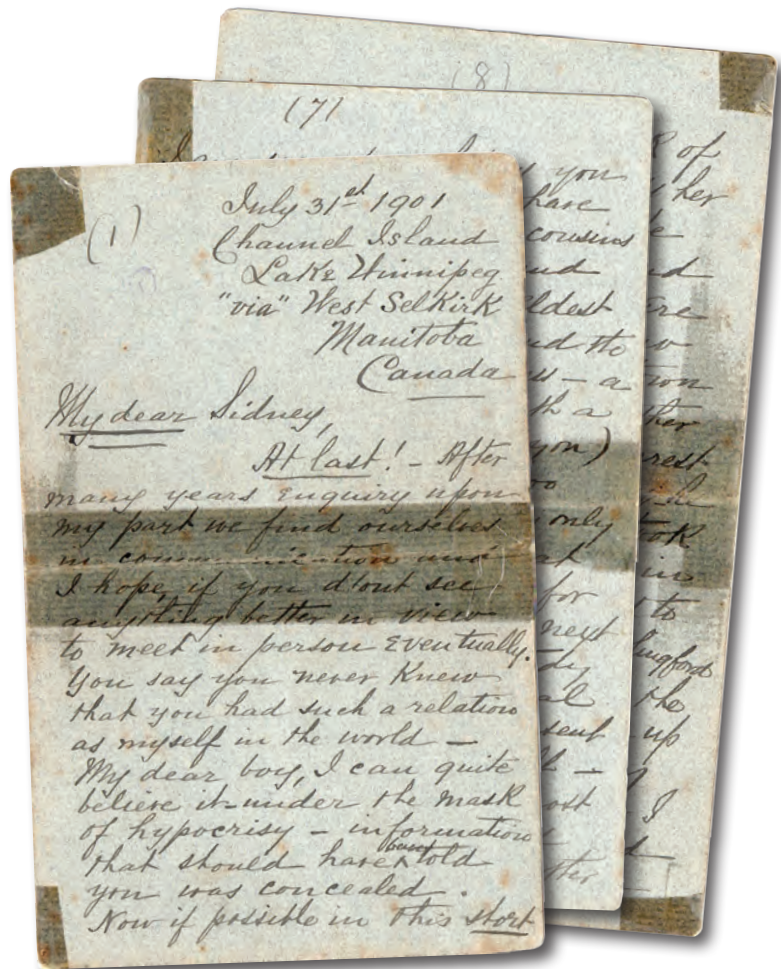 (1)
July 31st 1901
Channel Island
Lake Winnipeg
"via" West Selkirk
Manitoba
Canada
My dear Sidney,
At last! - After
many years enquiry upon
my part we find ourselves
in communication and
I hope, if you d'ont see
anything better in view
to meet in person Eventually.
You say you never Knew
that you had such a relation
as myself in the world -
My dear boy, I can quite
believe it - under the mask
of hypocrisy - information
that should have been told
you was concealed.
Now if possible in this short
(7)
you
have
cousins
ldest
- a
h a
you)
only
at
for
next
sent
(8)
of
her
ther
rest
in
to
lingford
the
up
I